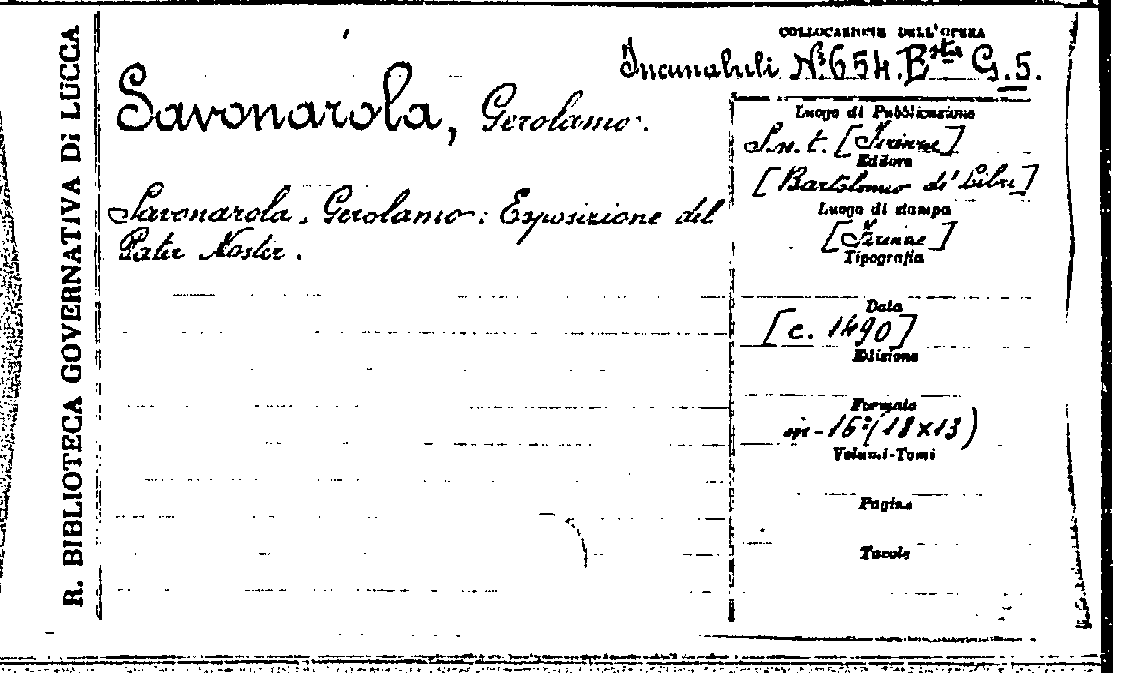 R. BIBLIOTECA GOVERNATIVA DI LUCCA
COLLOCAZIONE DELL'OPERA
Incunabuli N.º 654. Bsta G. 5.
Savonarola, Gerolamo.
Savonarola, Gerolamo: Esposizione del
Pater Noster.
Luogo di Pubblicazione
S.n.t. [Firenze]
Editore
[Bartolomeo di' Libri]
Luogo di stampa
[Firenze]
Tipografia
Data
[c. 1490]
Edizione
Formato
in-16º (18x13)
Volumi-Tomi
Pagine
Tavole